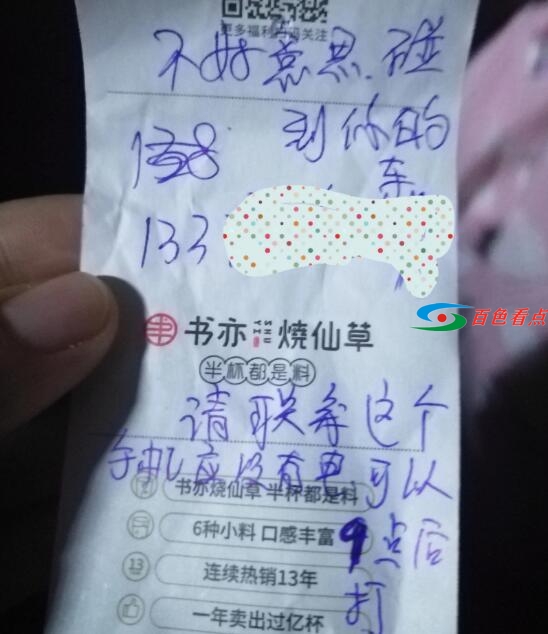 更多福利扫码关注
不好意思.碰
138 到你的
车
133
书亦 SHU YI 烧仙草
半杯都是料
请联系这个
手机应没有电,可以
书亦烧仙草 半杯都是料
6种小料 口感丰富
9点后
13 连续热销13年
打
一年卖出过亿杯
百色看点